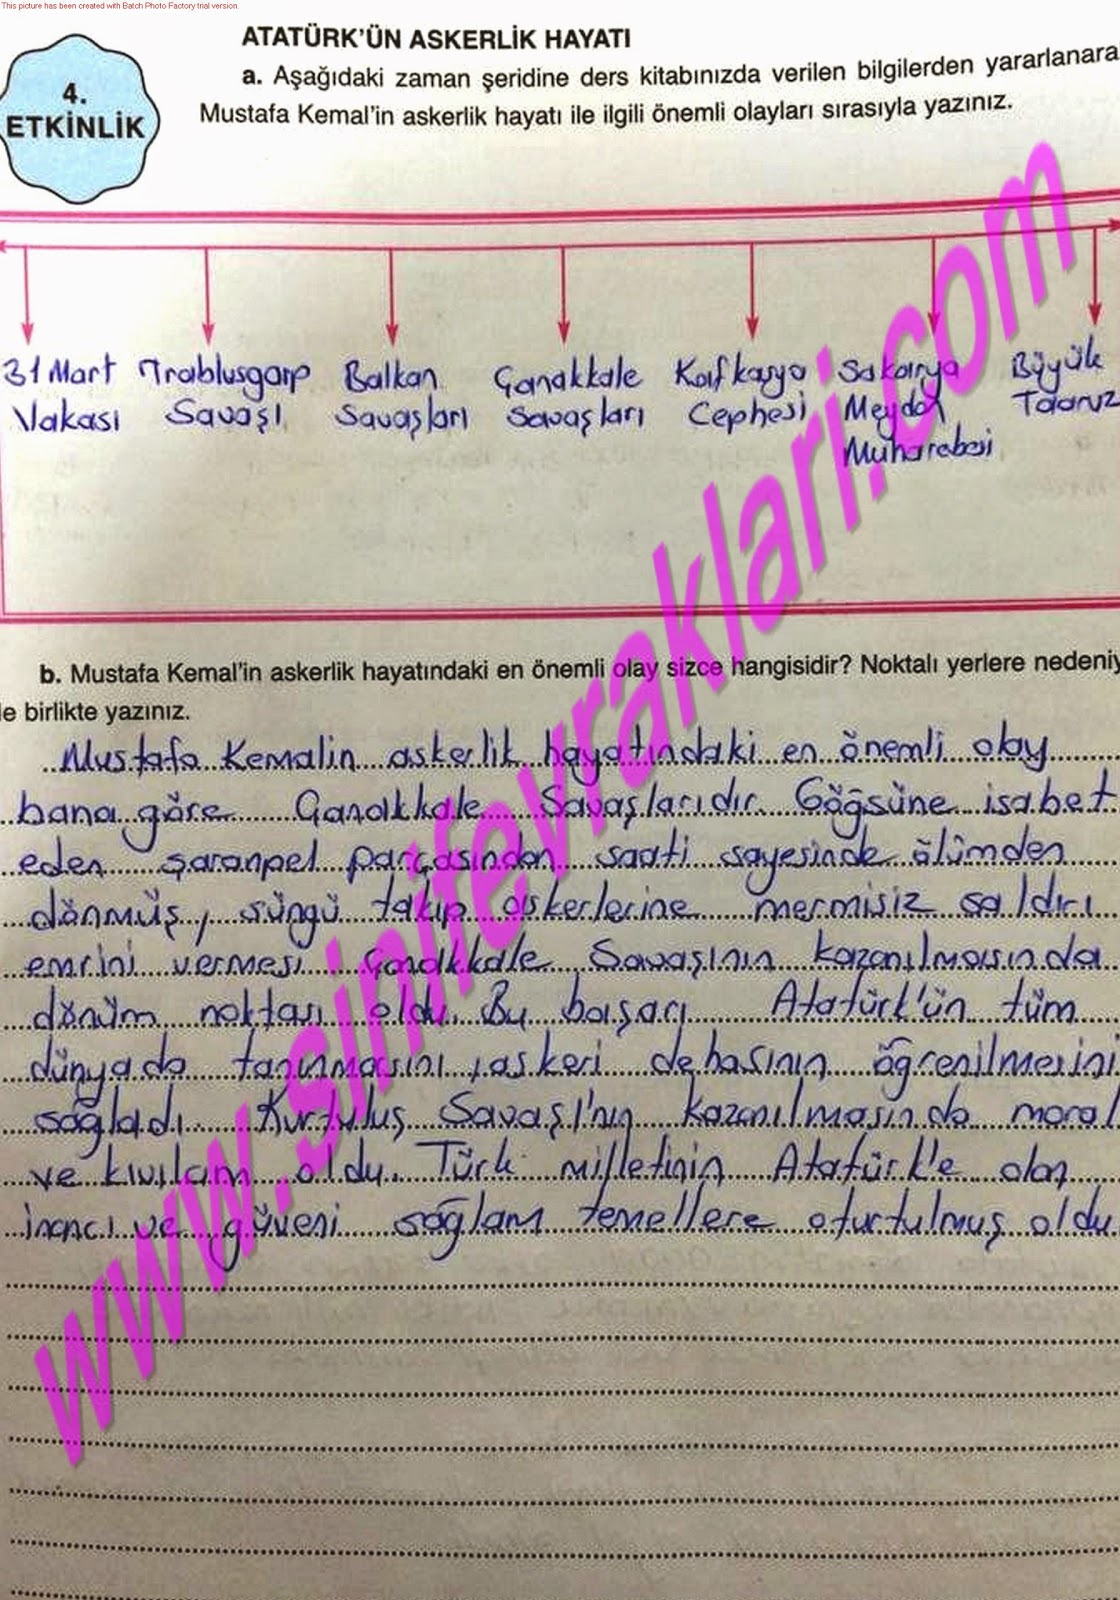 This picture has been created with Batch Photo Factory trial version.
ATATÜRK'ÜN ASKERLİK HAYATI
4.
ETKİNLİK
a. Aşağıdaki zaman şeridine ders kitabınızda verilen bilgilerden yararlanara
Mustafa Kemal'in askerlik hayatı ile ilgili önemli olayları sırasıyla yazınız.
31 Mart Vakası
Trablusgarp Savaşı
Balkan Savaşları
Çanakkale Savaşları
Kafkasya Cephesi
Sakarya Meydan Muharebesi
Büyük Taaruz
b. Mustafa Kemal'in askerlik hayatındaki en önemli olay sizce hangisidir? Noktalı yerlere nedeniy
le birlikte yazınız.
Mustafa Kemalin askerlik hayatındaki en önemli olay
bana göre Çanakkale Savaşlarıdır. Göğsüne isabet
eden şaranpel parçasından saati sayesinde ölümden
dönmüş, süngü takıp askerlerine mermisiz saldırı
emrini vermesi Çanakkale Savaşının kazanılmasında
dönüm noktası oldu. Bu başarı Atatürk'ün tüm
dünyada tanınmasını, askeri dehasının öğrenilmesini
sağladı. Kurtuluş Savaşı'nın kazanılmasında moral
ve kıvılcım oldu. Türk milletinin Atatürk'e olan
inancı ve güveni sağlam temellere oturtulmuş oldu
www.sinifevraklari.com